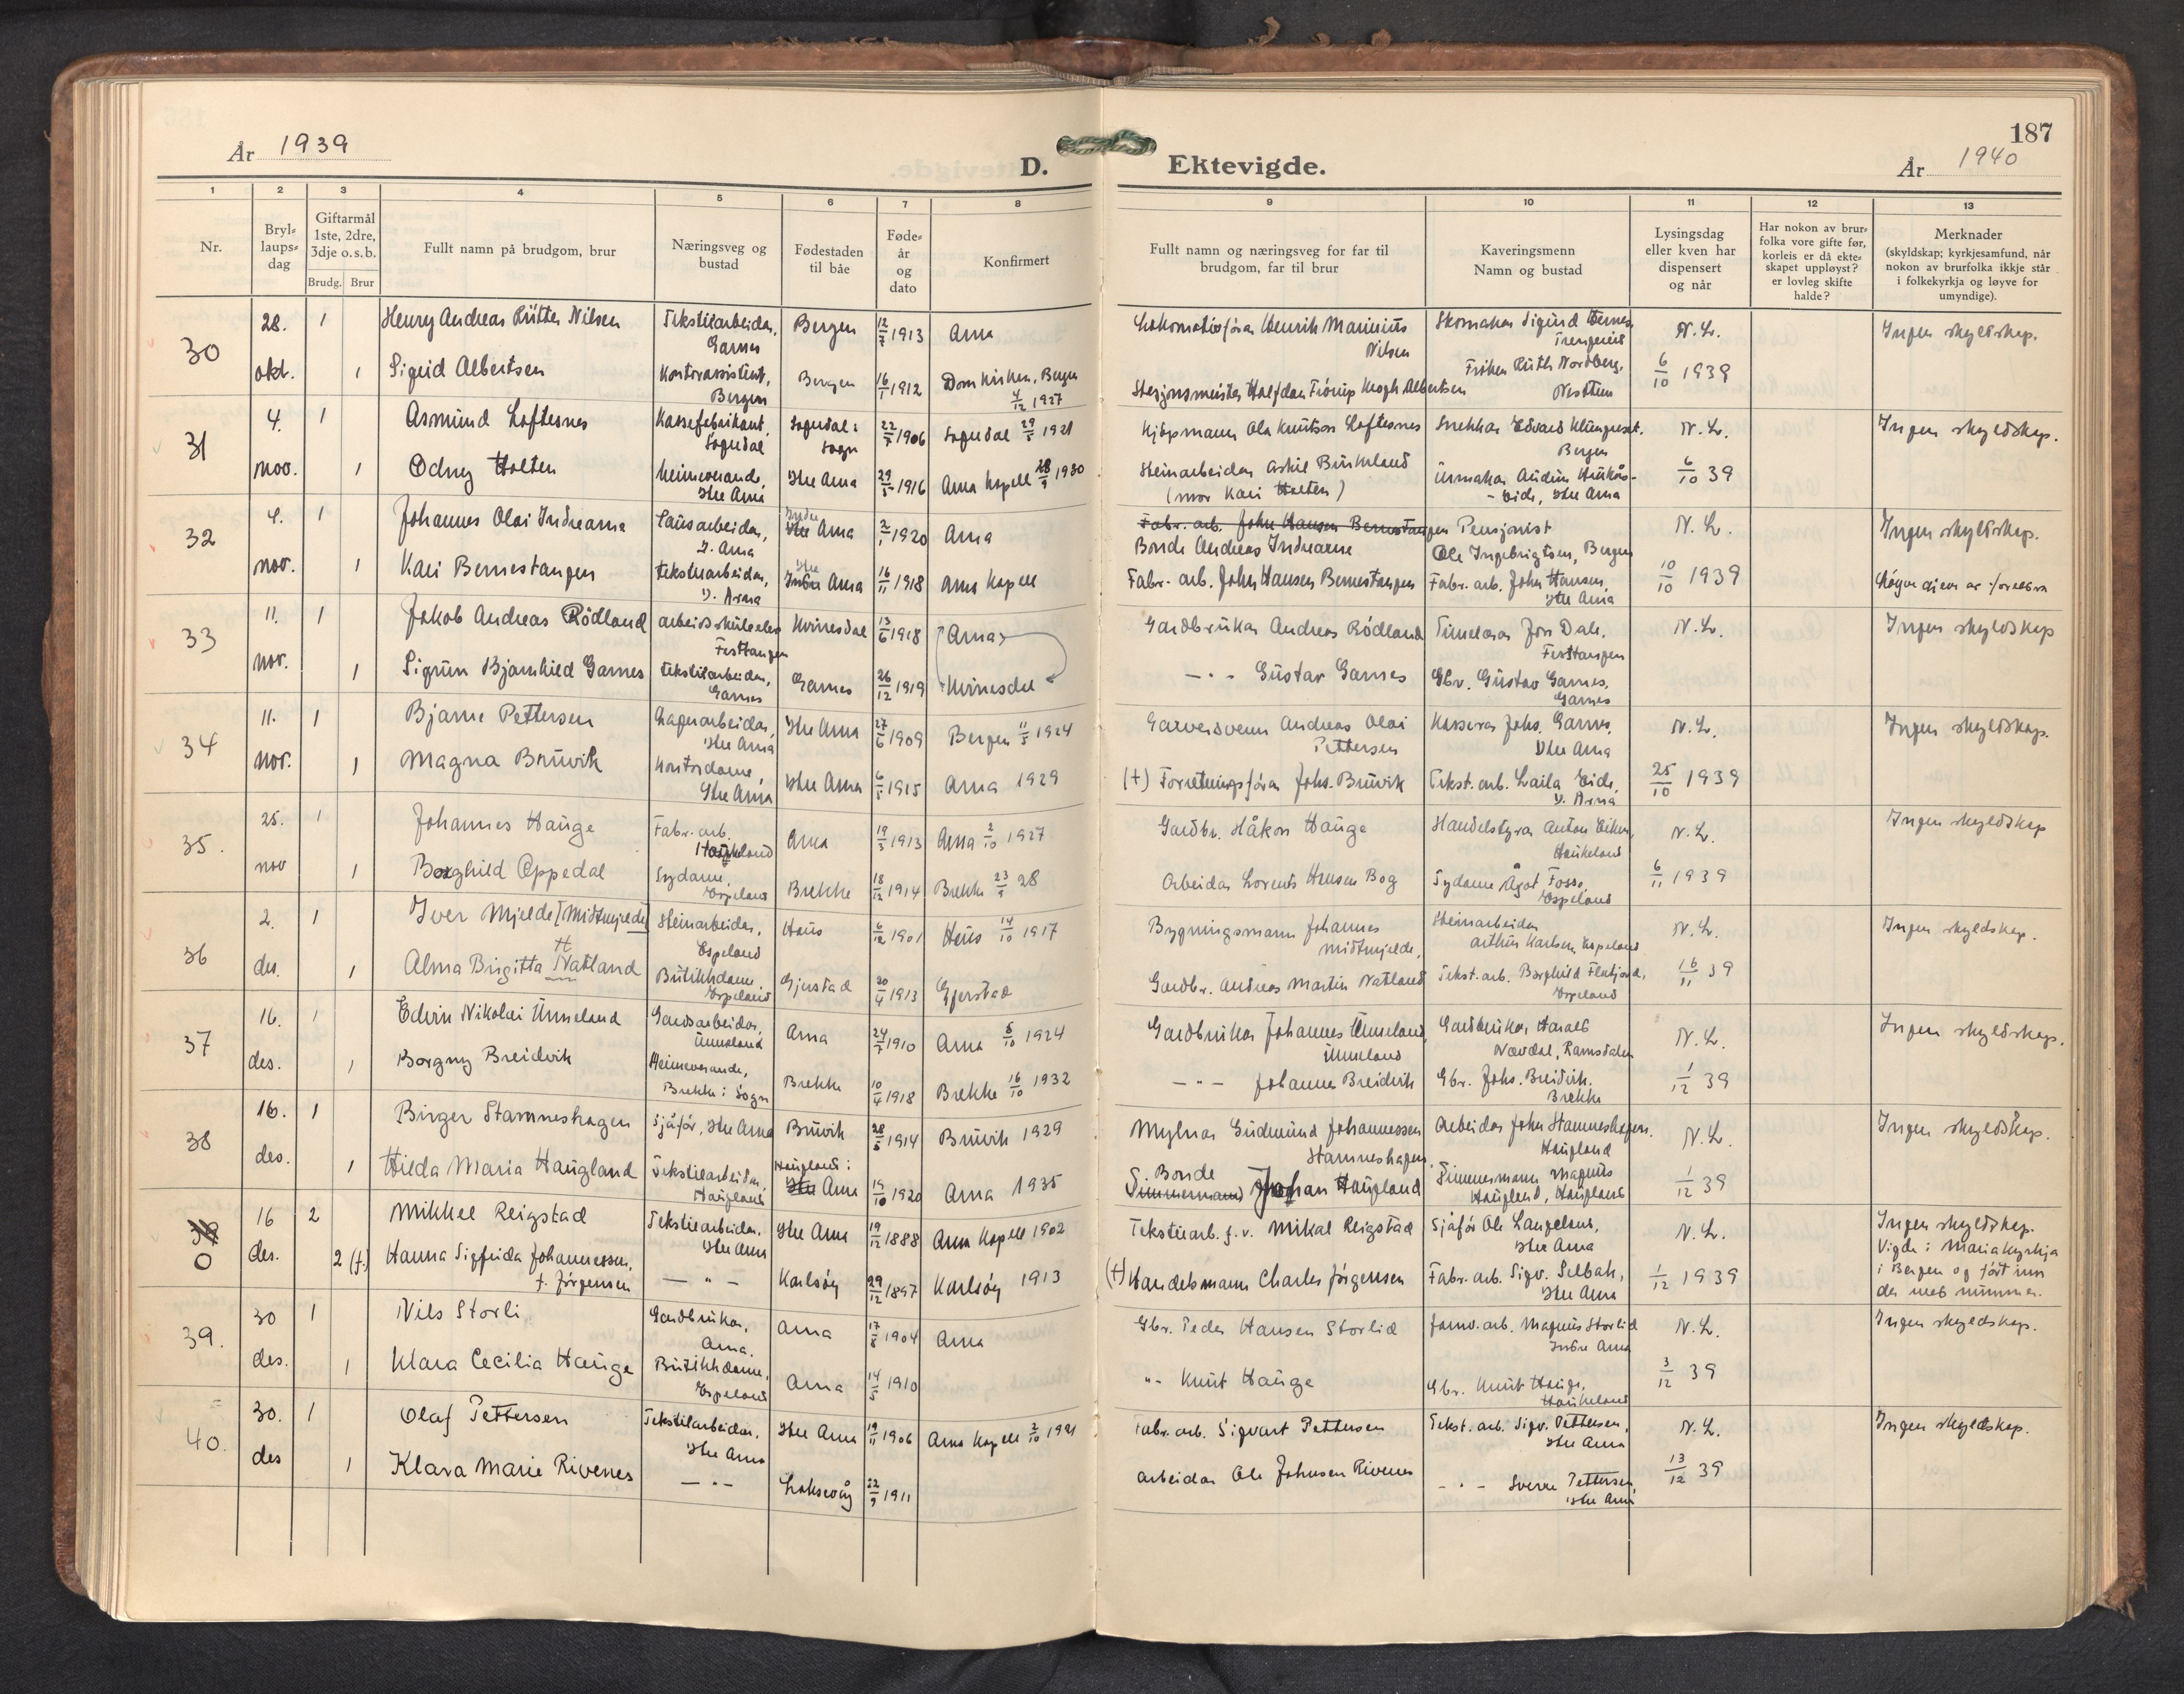 187
År 1939
D. Ektevigde.
År 1940
1 2 3 4 5 6 7 8 9 10 11 12 13
Nr.
Bryl=
laups=
dag
Giftarmål
1ste, 2dre,
3dje o.s.b.
Brudg. Brur
Fullt namn på brudgom, brur
Næringsveg og
bustad
Fødestaden
til båe
Føde=
år
og
dato
Konfirmert
Fullt namn og næringsveg for far til
brudgom, far til brur
Kaveringsmenn
Namn og bustad
Lysingsdag
eller kven har
dispensert
og når
Har nokon av brur=
folka vore gifte før,
korleis er då ekte=
skapet uppløyst?
er lovleg skifte
halde?
Merknader
(skyldskap; kyrkjesamfund, når
nokon av brurfolka ikkje står
i folkekyrkja og løyve for
umyndige).
30
28. 1 Henry Andreas Rütter Nilsen Tekstilarbeidar, Garnes Bergen 12/7 1913 Arna Lokomotivførar Henrik Marinius Nilsen Skomakar Sigurd N. L. Ingen skyldskap.
okt. 1 Sigrid Albertsen Kontorassistent, Bergen Bergen 16/1 1912 Domkirken, Bergen 4/12 1927 Stasjonsmeister Halfdan Krogh Albertsen Frøken Ruth Nordberg, Nesttun 6/10 1939
31
4. 1 Asmund Loftesnes Kassefabrikant, Sogndal Sogndal i Sogn 22/7 1906 Sogndal 29/5 1921 Kjøpmann Ola Knutson Loftesnes Snekkar Edvard Bergen N. L. Ingen skyldskap.
nov. 1 Odny Holten heimeverande, Ytre Arna Ytre Arna 29/5 1916 Arna Kapell 28/9 1930 Steinarbeidar Askil Birkeland (mor Kari Holten) Urmakar Audun Haukås-eide, Ytre Arna 6/10 39
32
4. 1 Johannes Olai Indrearna Lausarbeidar, I. Arna Indre Arna 2/1 1920 Arna Fabr. arb. John Hansen Bernestangen Bonde Andreas Indrearne Pensjonist Ole Ingebrigtsen, Bergen N. L. Ingen skyldskap.
nov. 1 Kari Bernestangen Tekstilarbeidar, Y. Arna Ytre Arna 16/11 1918 Arna Kapell Fabr. arb. John Hansen Bernestangen Fabr. arb. John Hansen, Ytre Arna 10/10 1939
33
11. 1 Jakob Andreas Rödland arbeidsskuleelev Festtangen Kvinesdal 13/6 1918 Arna Gardbrukar Andreas Rödland Timelærar Jon Dale, Festtangen N. L. Ingen skyldskap
nov. 1 Sigrun Bjarnhild Garnes Tekstilarbeidar, Garnes Garnes 26/12 1919 Kvinesdal — " — Gustav Garnes Gbr. Gustav Garnes, Garnes
34
11. 1 Bjarne Pettersen Lagerarbeidar, Ytre Arna Ytre Arna 27/6 1909 Bergen 11/5 1924 Garversvenn Andreas Olai Pettersen Kasserar Johs. Garnes, Ytre Arna N. L. Ingen skyldskap.
nov. 1 Magna Bruvik Kontordame, Ytre Arna Ytre Arna 6/5 1915 Arna 1929 (†) Forretningsførar Johs. Bruvik Tekst. arb. Laila Eide, Y. Arna 25/10 1939
35.
25. 1 Johannes Hauge Fabr. arb. Haukeland Arna 19/5 1913 Arna 2/10 1927 Gardbr. Håkon Hauge Handelstyrar Anton Eiken, Haukeland N. L. Ingen skyldskap
nov 1 Borghild Oppedal Sydame, Espeland Brekke 18/12 1914 Brekke 23/9 28 Arbeidar Lorents Hansen Bog Sydame Ågot Fosse, Espeland 6/11 1939
36
2. 1 Iver Mjelde [Midtmjelde] Steinarbeidar, Espeland Haus 6/12 1901 Haus 14/10 1917 Bygningsmann Johannes Midtmjelde, Steinarbeidar Arthur Karlsen, Espeland N. L. Ingen skyldskap.
des. 1 Alma Brigitta Natland Butikkdame Espeland Gjerstad 20/4 1913 Gjerstad Gardbr. Andreas Martin Natland Tekst. arb. Borghild Flatjord, Espeland 16/11 39
37
16. 1 Edvin Nikolai Unneland Gardsarbeidar, Unneland Arna 24/7 1910 Arna 5/10 1924 Gardbrukar Johannes Unneland, Unneland Gardbrukar Harald Nævdal, Ramsdalen N. L. Ingen skyldskap.
des. 1 Borgny Breidvik Heimeverande, Brekke i Sogn Brekke 10/4 1918 Brekke 16/10 1932 — " — Johannes Breidvik Gbr. Johs. Breidvik. Brekke 1/12 39
38
16. 1 Birger Stamneshagen Sjåfør, Ytre Arna Bruvik 28/5 1914 Bruvik 1929 Mylnar Gudmund Johannessen Stamneshagen Arbeidar John Stamneshagen. Haugland N. L. Ingen skyldskap.
des. 1 Hilda Maria Haugland Tekstilarbeidar, Haugland Haugland i Ytre Arna 19/10 1920 Arna 1935 Bonde Timmermann Johan Haugland Timmermann Magnus Haugland, Haugland 1/12 39
39
0
16 2 Mikkel Reigstad Tekstilarbeidar, Ytre Arna Ytre Arna 19/12 1888 Arna Kapell 1902 Tekstilarb. f. v. Mikal Reigstad Sjåfør Ole Langeland, Ytre Arna N. L. Ingen skyldskap. Vigde i Mariakyrkja i Bergen og ført inn der med nummer.
des. 2 (f.) Hanna Sigfrida Johannessen, f. Jørgensen — " — Karlsøy 29/12 1897 Karlsøy 1913 (†) Handelsmann Charles Jörgensen Fabr. arb. Sigv. Selbak, Ytre Arna 1/12 1939
39.
30 1 Nils Storli Gardbrukar, Arna. Arna 17/8 1904 Arna Gbr. Peder Hansen Storlid Jarnv. arb. Magnus Storlid Indre Arna N. L. Ingen skyldskap.
des. 1 Klara Cecilia Hauge Butikkdame, Espeland Arna 14/5 1910 " - Knut Hauge Gbr. Knut Hauge, Haukeland 3/12 39
40.
30. 1 Olaf Pettersen Tekstilarbeidar, Ytre Arna Ytre Arna 19/11 1906 Arna Kapell 2/10 1921 Fabr. arb. Sigvart Pettersen Tekst. arb. Sigv. Pettersen, Ytre Arna N. L. Ingen skyldskap.
des 1 Klara Marie Rivenes — " — Laksevåg 22/9 1911 Arbeidar Ole Johnsen Rivenes — " — Sverre Pettersen, Ytre Arna 13/12 39